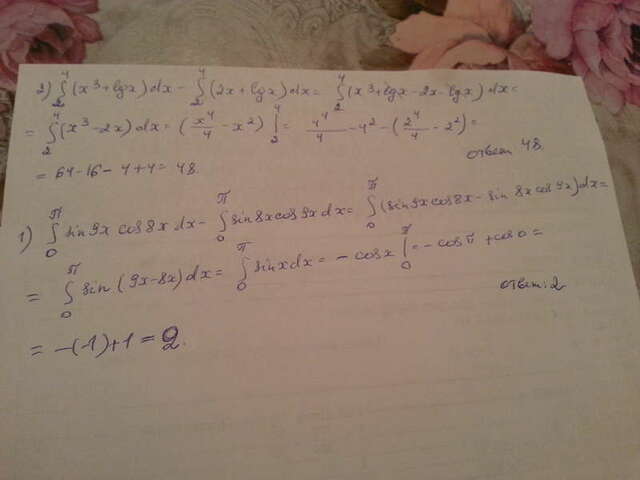 2) ∫₂⁴ (x³ + lgx) dx - ∫₂⁴ (2x + lgx) dx = ∫₂⁴ (x³ + lgx - 2x - lgx) dx =
= ∫₂⁴ (x³ - 2x) dx = (x⁴/4 - x²) |₂⁴ = 4⁴/4 - 4² - (2⁴/4 - 2²) =
= 64 - 16 - 4 + 4 = 48. ответ 48.
1) ∫₀^π sin9x cos8x dx - ∫₀^π sin8x cos9x dx = ∫₀^π (sin9x cos8x - sin 8x cos 9x) dx =
= ∫₀^π sin (9x - 8x) dx = ∫₀^π sinx dx = - cosx |₀^π = - cosπ + cos0 =
= -(-1) + 1 = 2. ответ: 2